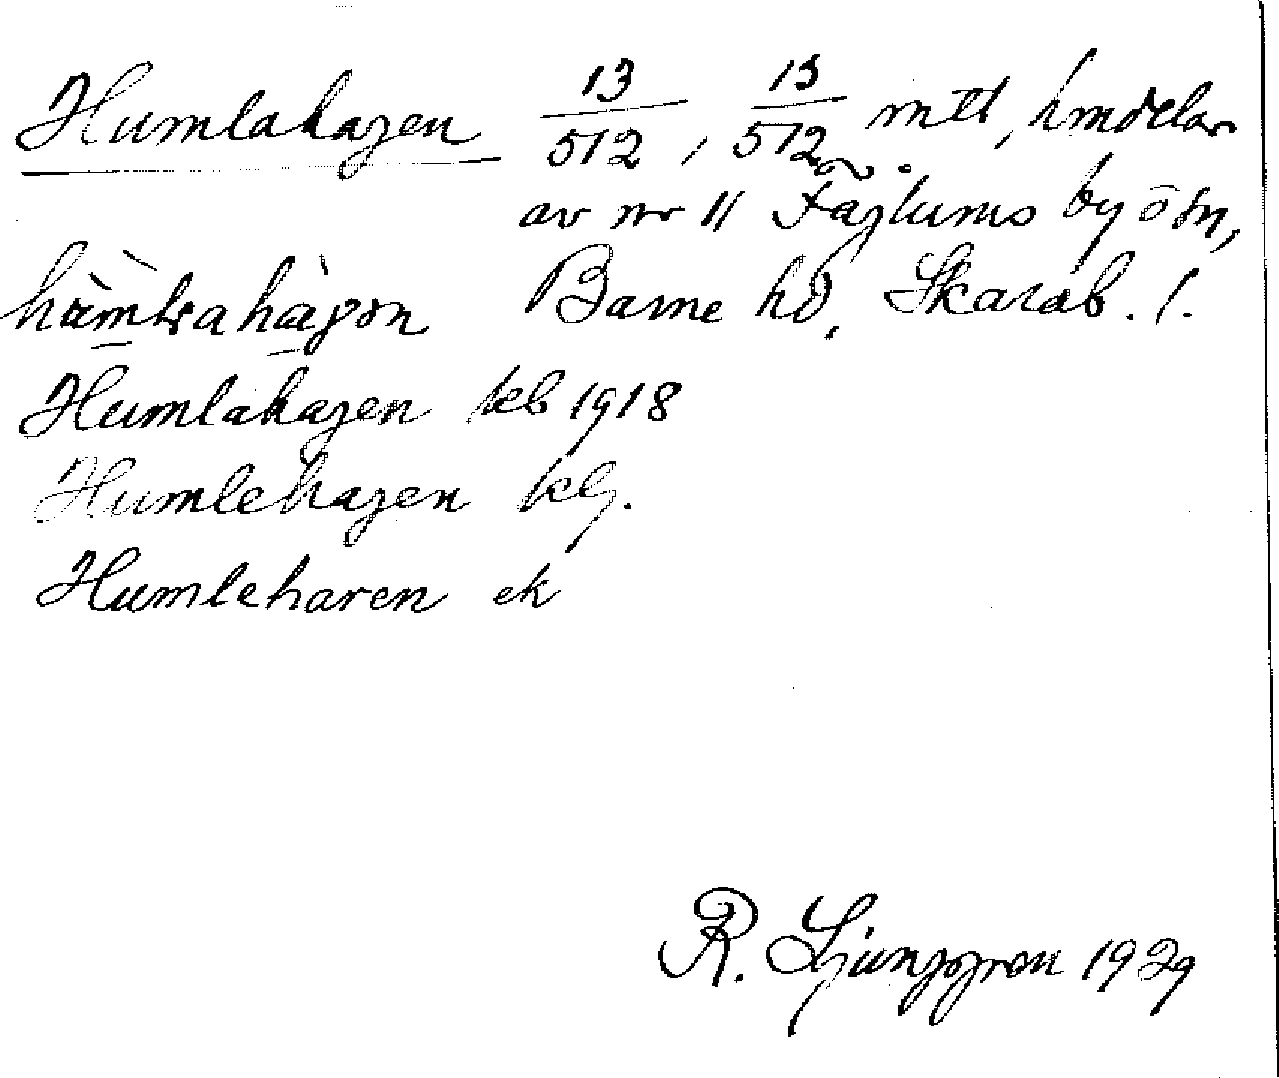 Humlahagen 13/512, 13/512 mtl, hmdelar
av nr 11 Fåglums by ösn,
Barne hd, Skarab. l.
Humlahagen kb 1918
Humlehagen klj.
Humleharen ek
R. Ljunggren 1929